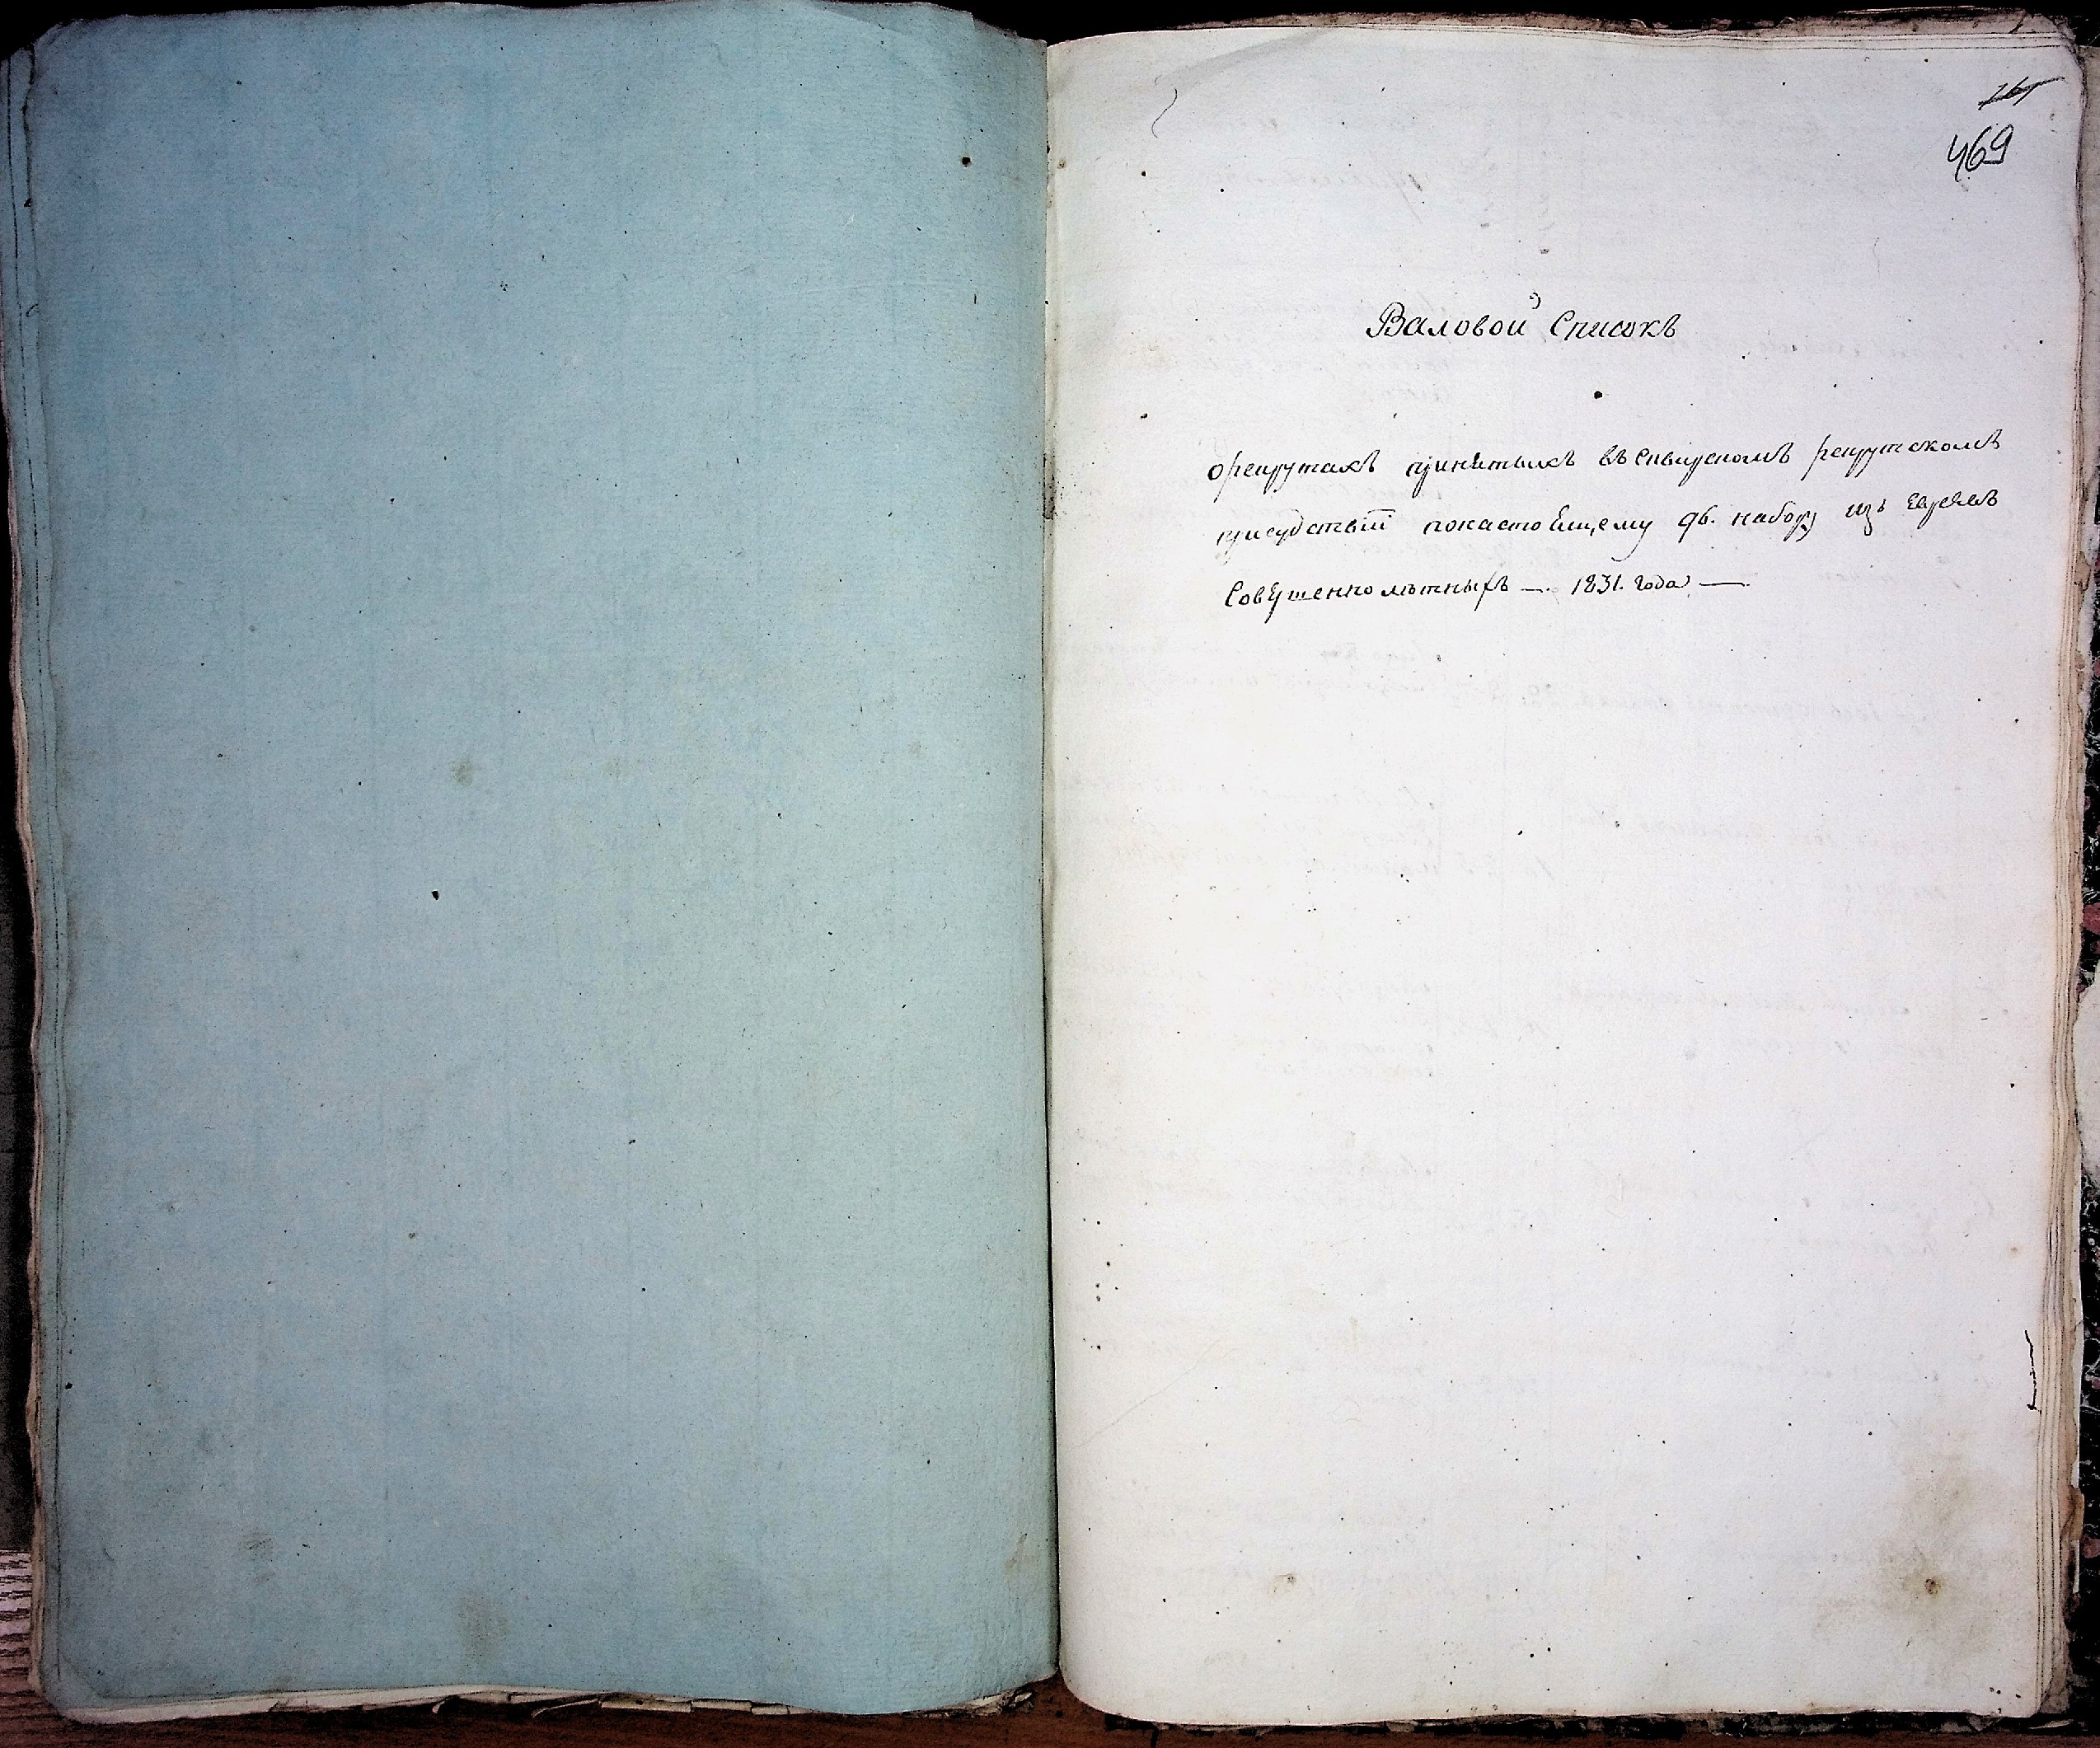 469
Валовой Списокъ
орекрутахъ принятыхъ въ Сквирскомъ рекрутскомъ
присудствіи понастоящему 96. набору изъ Евреевъ
Совершеннолѣтныхъ —. 1831. года —